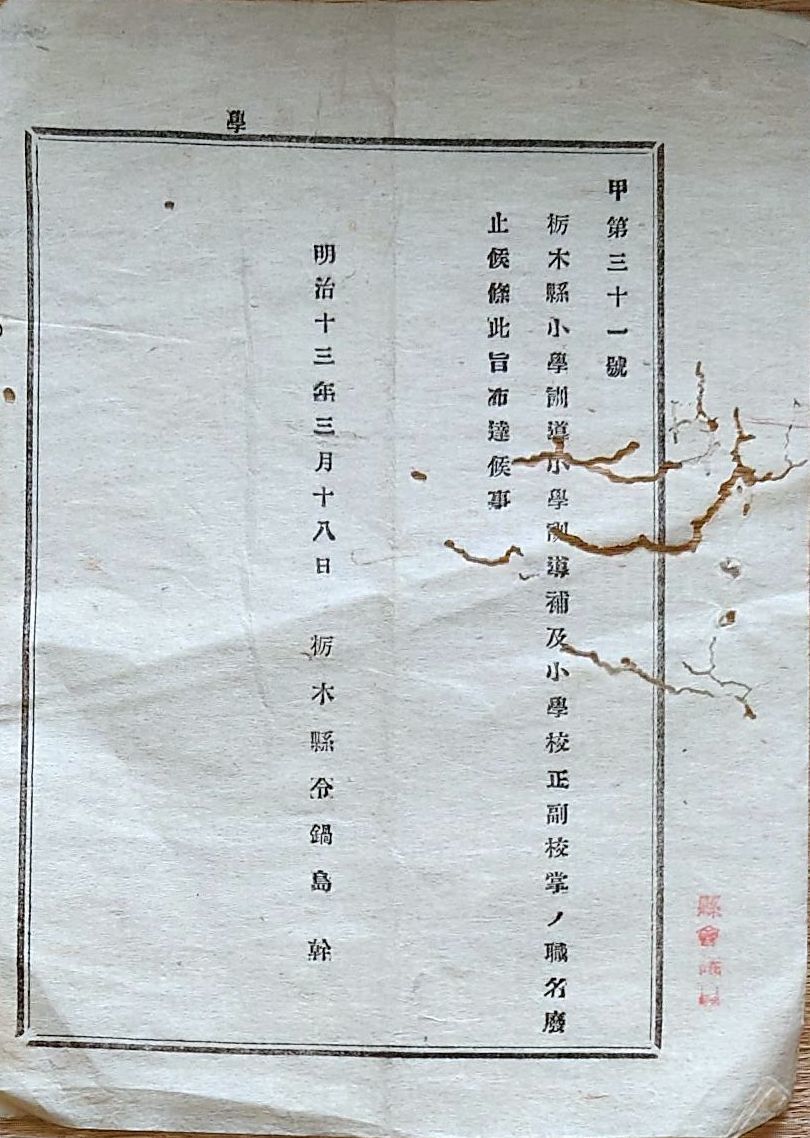 甲第三十一號
栃木縣小學訓導小學訓導補及小學校正副校掌ノ職名廢
止候條此旨布達候事
明治十三年三月十八日　栃木縣令鍋島　幹
學
縣會